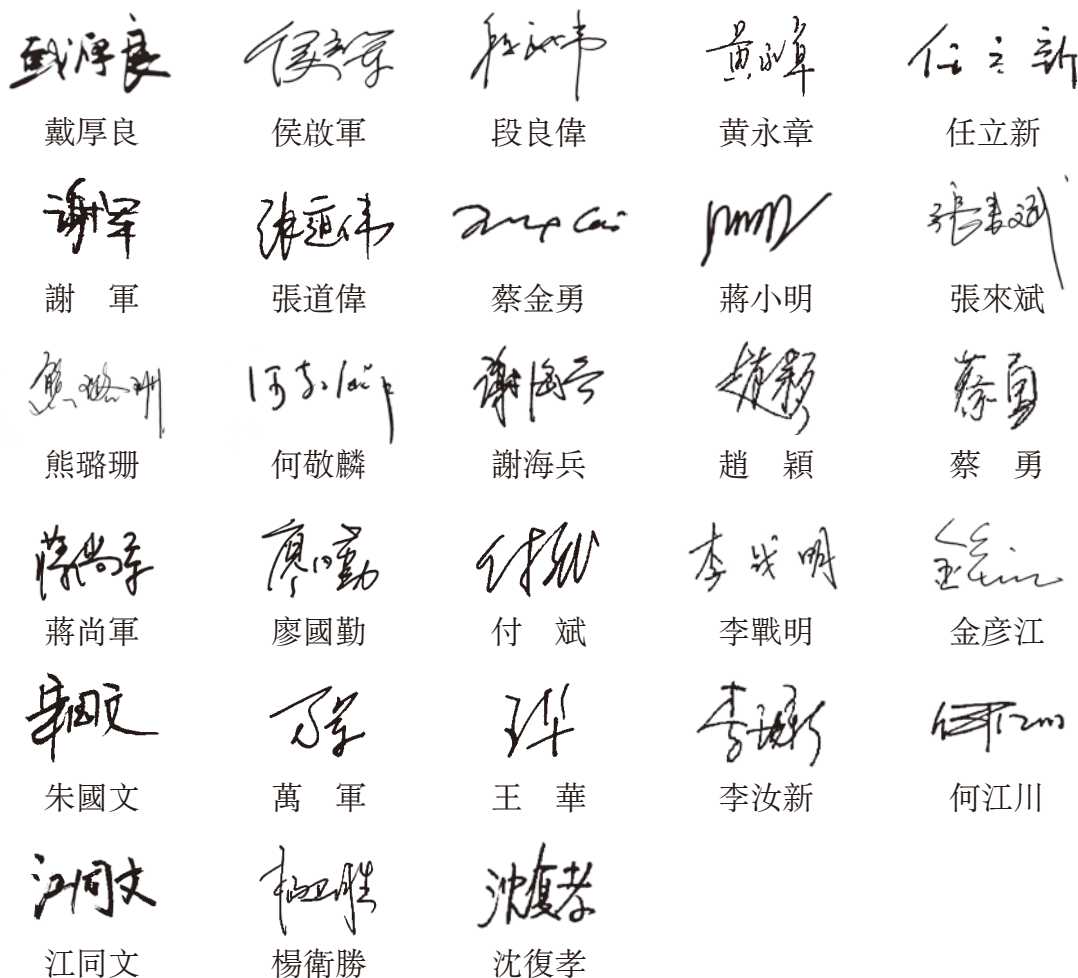 戴厚良 侯啟軍 段良偉 黃永章 任立新
謝　軍 張道偉 蔡金勇 蔣小明 張來斌
熊璐珊 何敬麟 謝海兵 趙　穎 蔡　勇
蔣尚軍 廖國勤 付　斌 李戰明 金彥江
朱國文 萬　軍 王　華 李汝新 何江川
江同文 楊衛勝 沈復孝